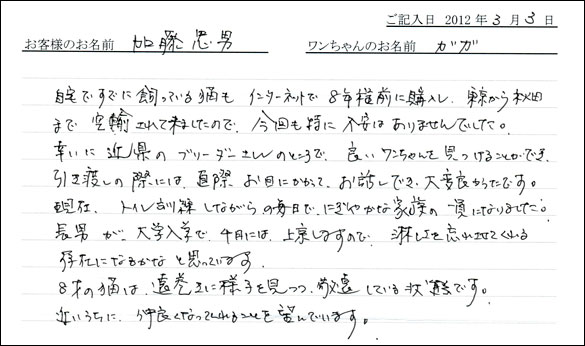 ご記入日 2012年3月3日
お客様のお名前 加藤忠男 ワンちゃんのお名前 ガガ
自宅ですでに飼っている猫も インターネットで 8年程前に購入し、東京から秋田
まで 空輸されて来ましたので、今回も特に 不安は ありませんでした。
幸いに 近県の ブリーダーさんのところで、良いワンちゃんを見つけることができ、
引き渡しの際には、直接 お目にかかって、お話しでき、大変良かったです。
現在、トイレ訓練しながら の毎日で、にぎやかな家族の一員になりました。
長男が、大学入学で、4月には、上京しますので、淋しさを忘れさせてくれる
存在になるかな と思っています。
8才の猫は、遠巻きに様子を見つつ、敬遠している状態です。
近いうちに、仲良くなってくれることを望んでいます。